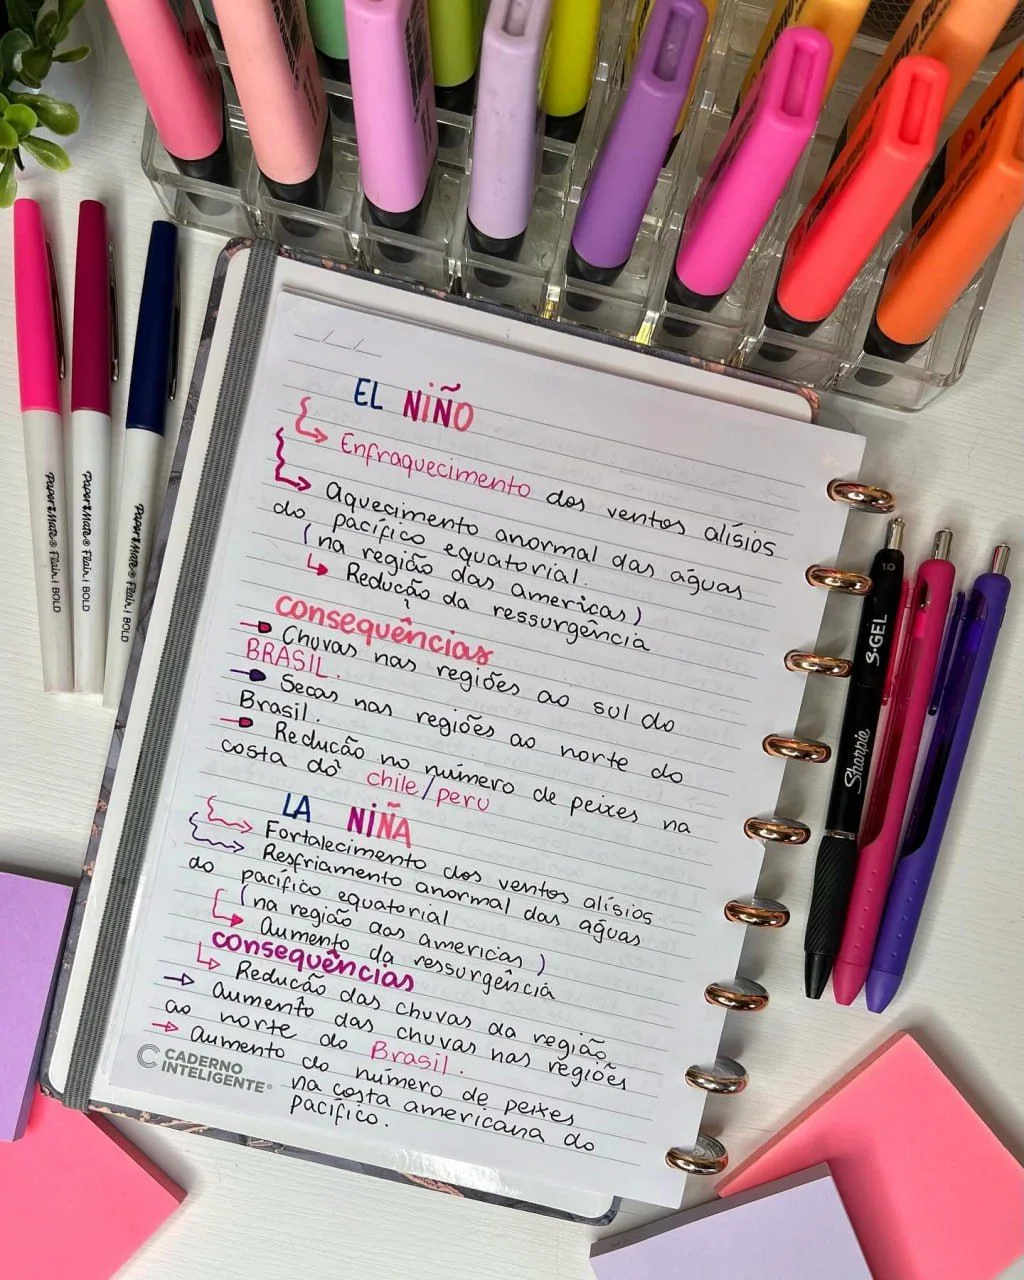 EL NIÑO
Enfraquecimento dos ventos alísios
Aquecimento anormal das águas
do pacífico equatorial.
(na região das americas)
Redução da ressurgência
consequências
Chuvas nas regiões ao sul do
BRASIL.
Secas nas regiões ao norte do
Brasil.
Redução no número de peixes na
costa do chile/peru
LA NIÑA
Fortalecimento dos ventos alísios
Resfriamento anormal das águas
do pacífico equatorial
(na região aas americas)
Aumento da ressurgência
consequências
Redução das chuvas da região
Aumento das chuvas nas regiões
ao norte do Brasil.
Aumento do número de peixes
na costa americana do
pacífico.
CADERNO
INTELIGENTE®
Paper Mate® Flair | BOLD
Paper Mate® Flair | BOLD
Paper Mate® Flair | BOLD
Sharpie S·GEL 1.0